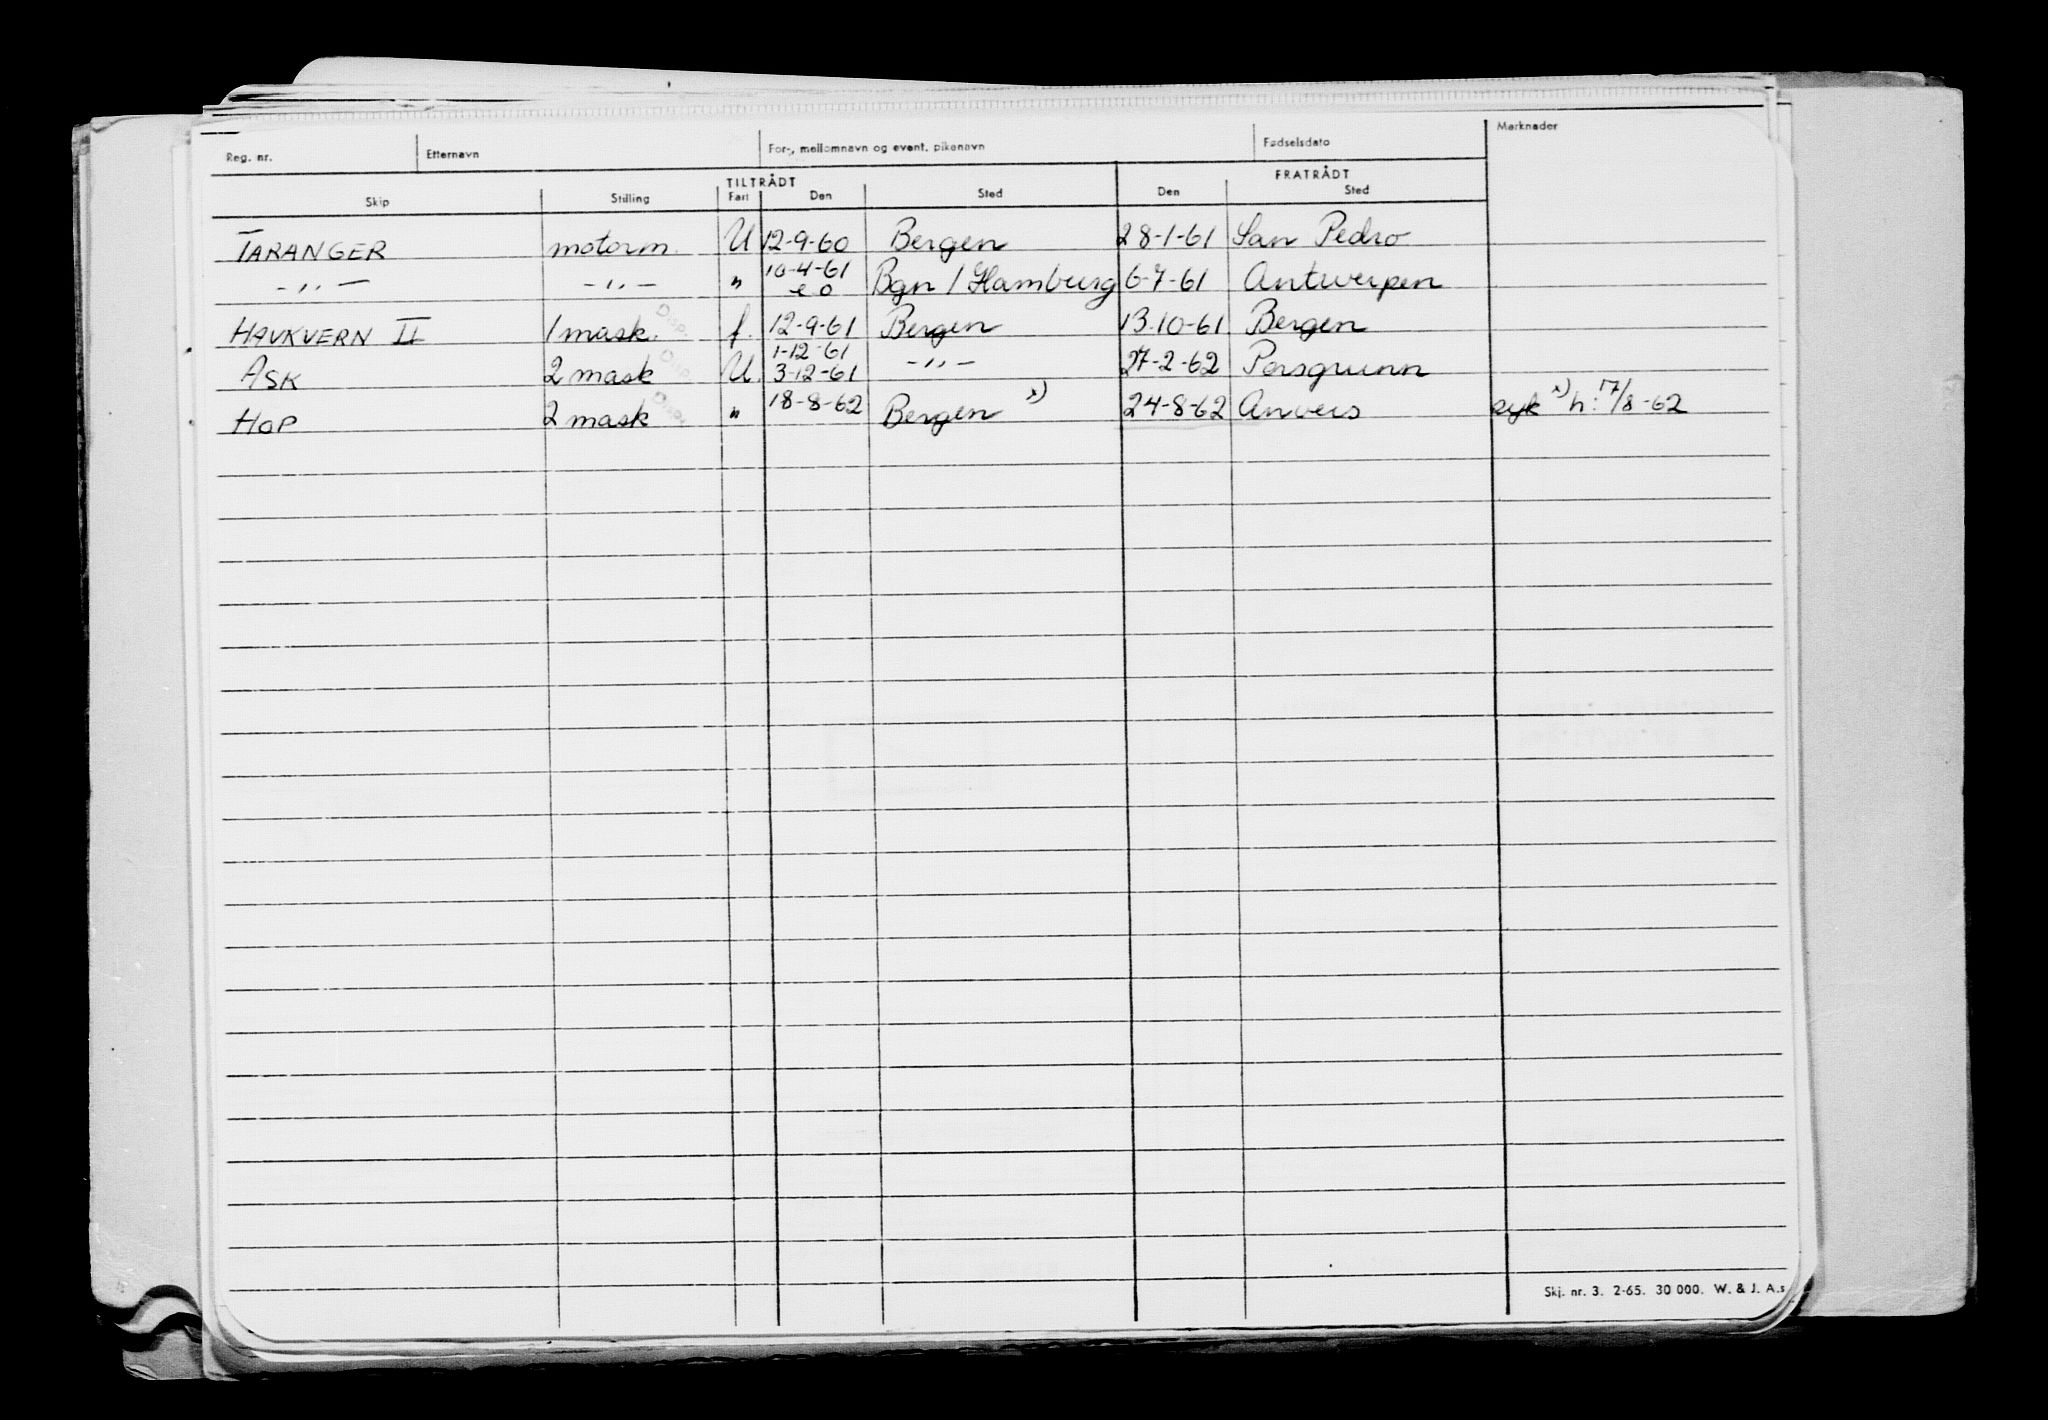 Reg. nr. Etternavn For-, mellomnavn og event. pikenavn Fødselsdato Merknader
TILTRÅDT FRATRÅDT
Skip Stilling Fart Den Sted Den Sted
TARANGER motorm. U 12-9-60 Bergen 28-1-61 San Pedro
-"- -"- " 10-4-61 Bgn / Hamburg 6-7-61 Antwerpen
HAVKVERN II 1 mask. f. 12-9-61 Bergen 13.10-61 Bergen
1-12-61
ASK 2 mask U. 3-12-61 -"- 27-2-62 Porsgrunn
HOP 2 mask " 18-8-62 Bergen x) 24-8-62 Anvers syk x) h: 17/8-62
Disp.
Disp.
Disp.
Skj. nr. 3. 2-65. 30 000. W. & J. A.s